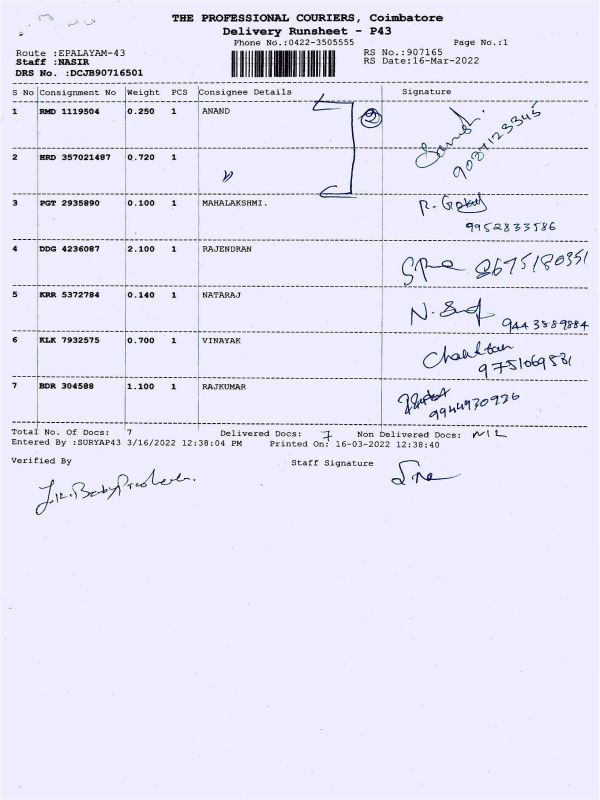 THE PROFESSIONAL COURIERS, Coimbatore
Delivery Runsheet - P43
Phone No.:0422-3505555 Page No.:1
Route :EPALAYAM-43 RS No.:907165
Staff :NASIR RS Date:16-Mar-2022
DRS No. :DCJB90716501
S No Consignment No Weight PCS Consignee Details Signature
1 RMD 1119504 0.250 1 ANAND 2
9087123345
2 HRD 357021487 0.720 1 "
3 PGT 2935890 0.100 1 MAHALAKSHMI.
9952833586
4 DDG 4236087 2.100 1 RAJENDRAN 8675180351
5 KRR 5372784 0.140 1 NATARAJ
9443589884
6 KLK 7932575 0.700 1 VINAYAK
9751069531
7 BDR 304588 1.100 1 RAJKUMAR
9944930936
Total No. Of Docs: 7 Delivered Docs: 7 Non Delivered Docs: NIL
Entered By :SURYAP43 3/16/2022 12:38:04 PM Printed On: 16-03-2022 12:38:40
Verified By Staff Signature